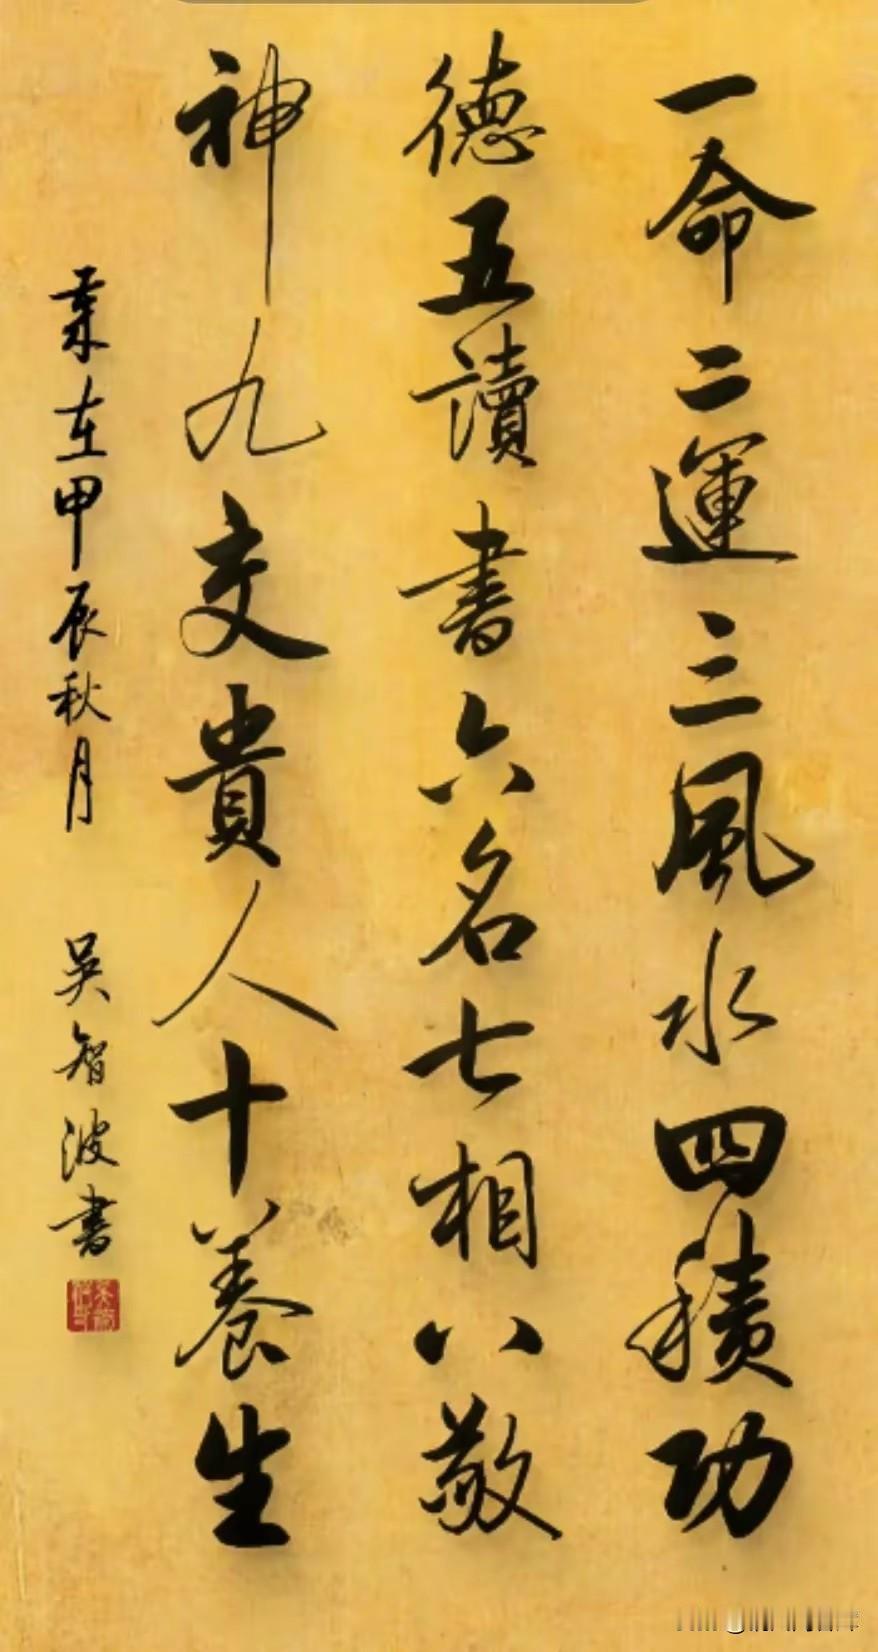 一命二運三風水四積功
德五讀書六名七相八敬
神九交貴人十養生
歲在甲辰秋月 吳智波書